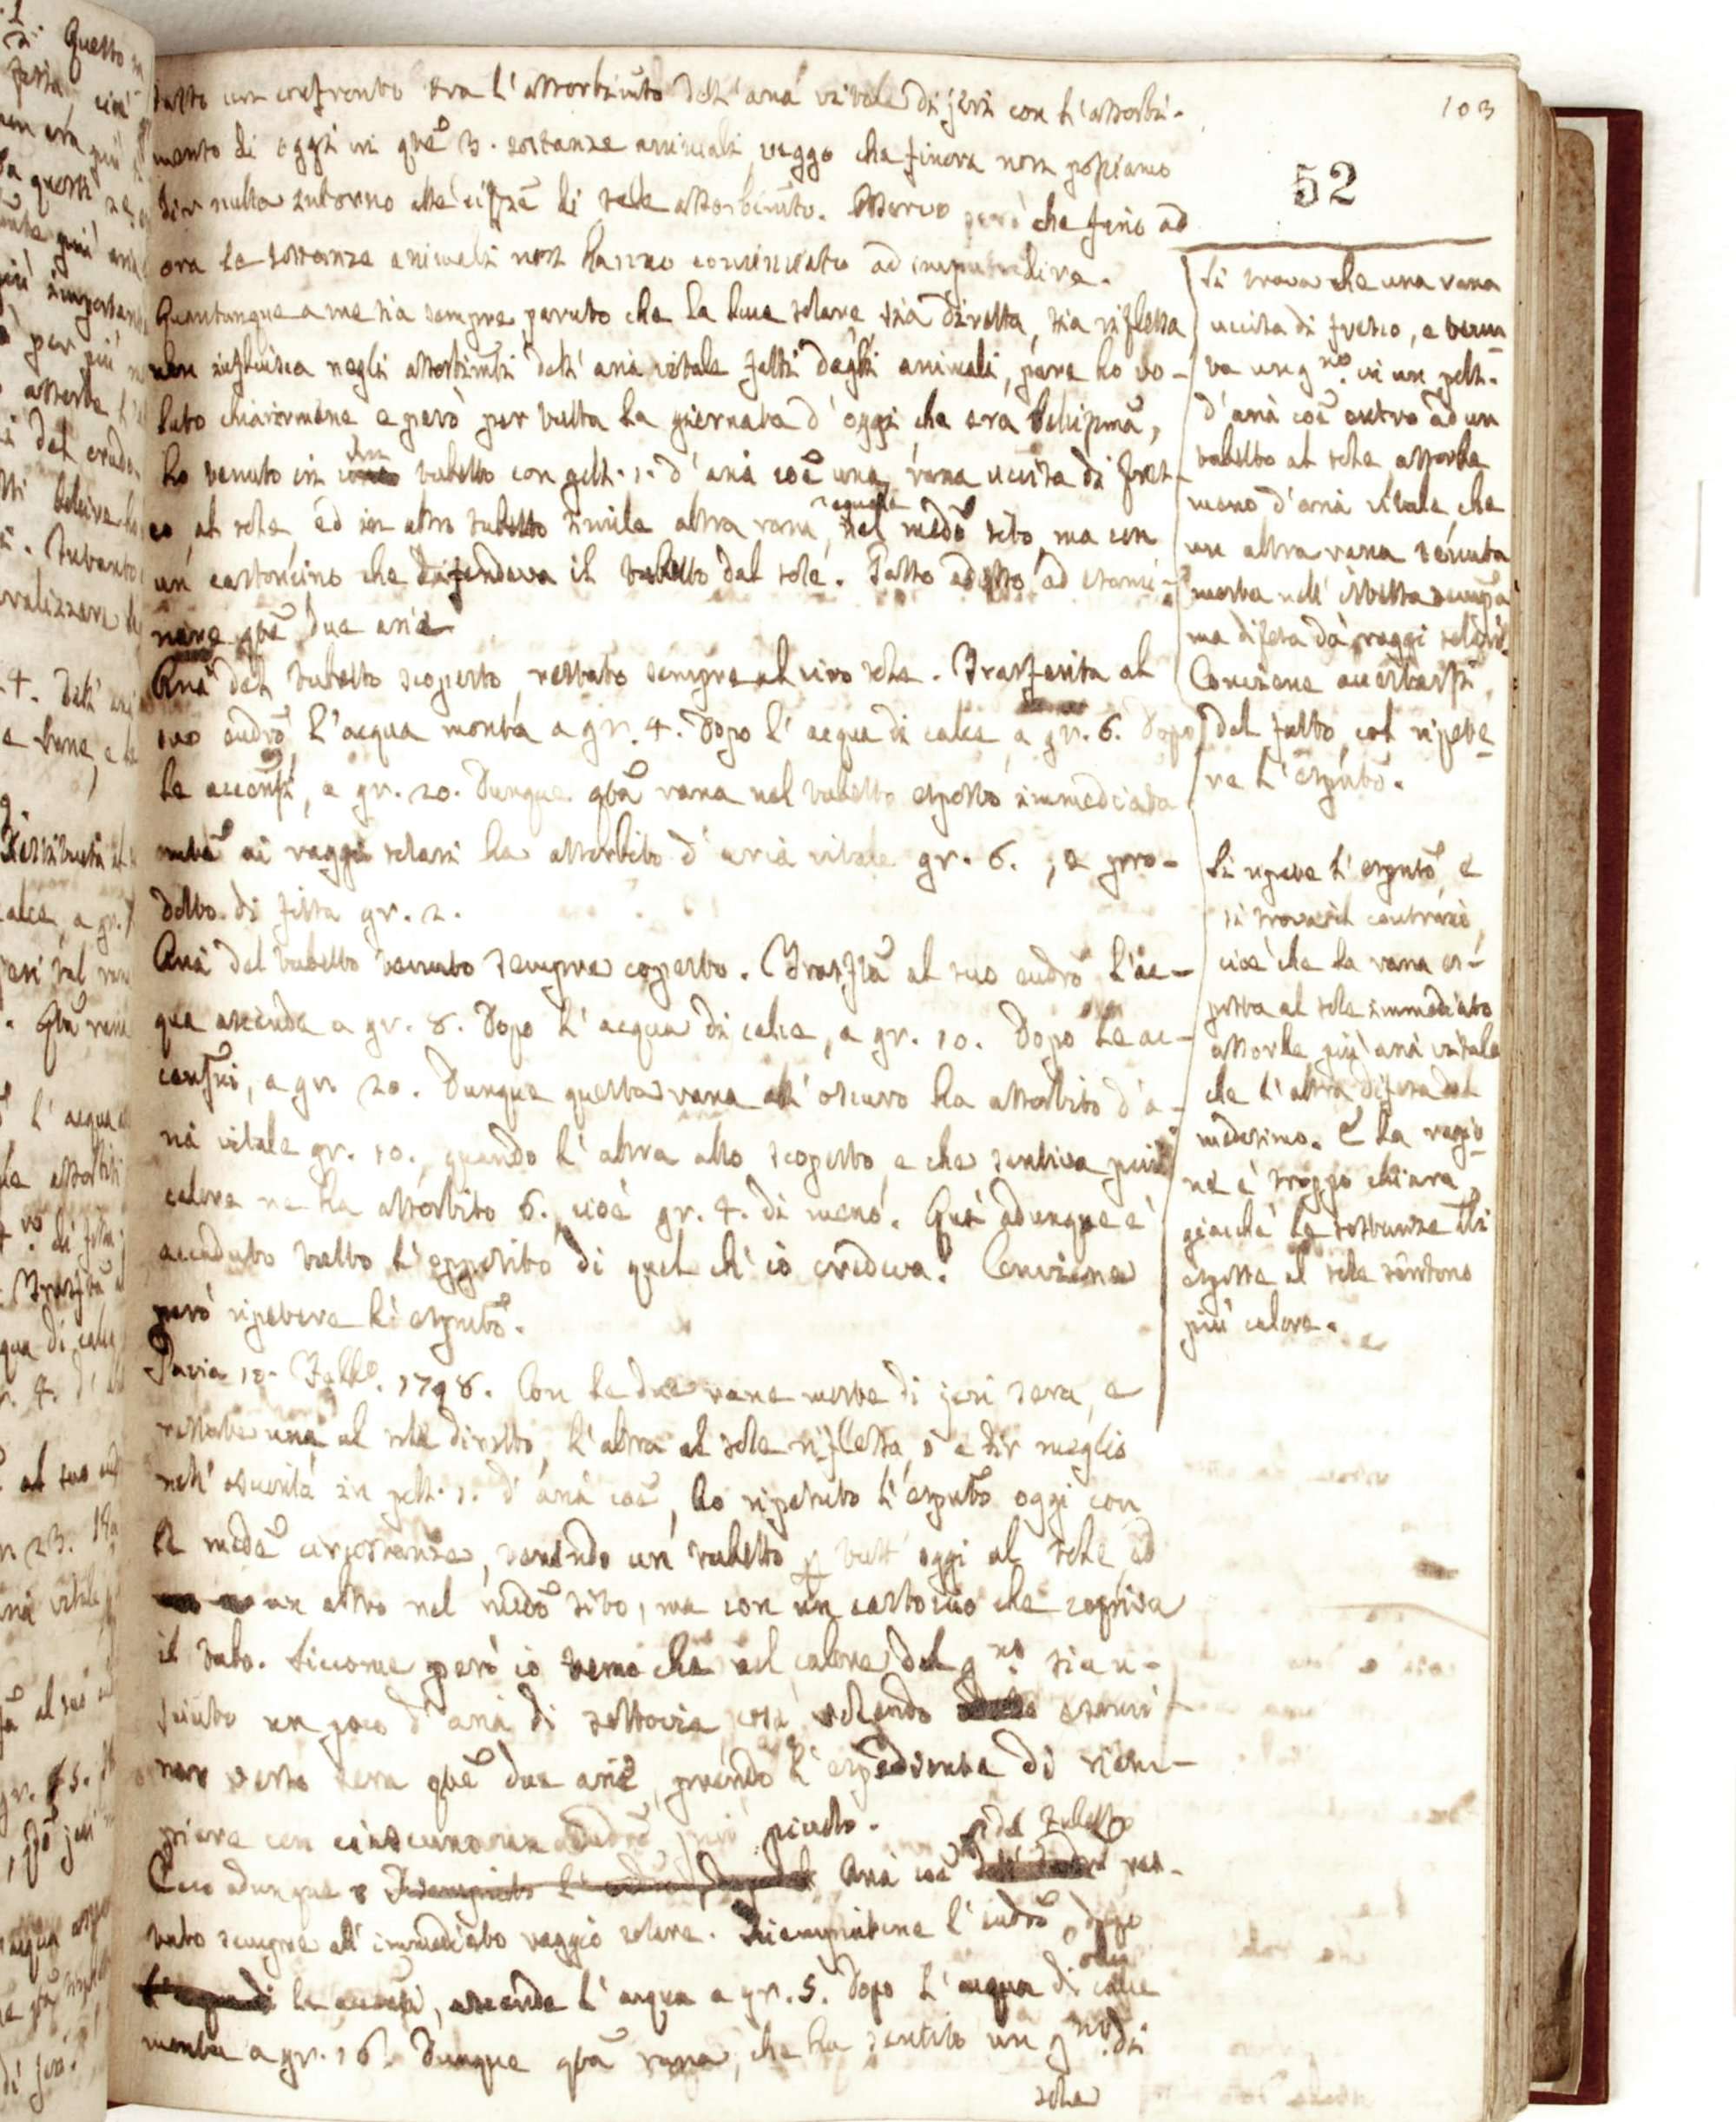 103
52
fatto un confronto tra l'assorbimto dell'aria vitale di jeri con l'assorbi-
mento di oggi in qte 3. sostanze animali, veggo che finora non possiamo
dir nulla intorno alle di tale assorbimto. Osservo però che fino ad
ora le sostanze animali non hanno cominciato ad imputridire.
Quantunque a me sia sempre paruto che la luce solare, sia diretta, sia riflessa
non influisca negli assorbimti dell'aria vitale fatti dagli animali, pure ho vo-
luto chiarirmene e però per tutta la giornata d'oggi che era bellissima,
ho tenuto in un tubetto con poll. 1. d'aria coe una rana uccisa di fres-
co al sole, ed in altro tubetto simile altra rana eguale, nel medo sito, ma con
un cartoncino che difendeva il tubetto dal sole. Passo adesso ad esami-
nare qte due arie
Aria del tubetto scoperto, restato sempre al vivo sole. Trasferita al
suo eudro, l'acqua monta a gr. 4. Dopo l'acqua di calce, a gr. 6. Dopo
le accensi, a gr. 20. Dunque qta rana nel tubetto esposto immediata
mte ai raggi solari ha assorbito d'aria vitale gr. 6., e pro-
dotto di fissa gr. 2.
Aria del tubetto tenuto sempre coperto. Trasfta al suo eudro l'ac-
qua ascende a gr. 8. Dopo l'acqua di calce, a gr. 10. Dopo le ac-
censni, a gr. 20. Dunque questa rana all'oscuro ha assorbito d'a-
ria vitale gr. 10., quando l'altra allo scoperto, e che sentiva più
calore ne ha assorbito 6. cioè gr. 4. di meno. Quì adunque è
accaduto tutto l'opposito di quel ch'io credeva. Conviene
però ripetere l'esprimto.
Pavia 10. 1798. Con le due rane morte di jeri sera, e
restate una al sole diretto, l'altra al sole riflesso, o a dir meglio
nell'oscurità in poll. 1. d'aria coe, ho ripetuto l'esprimto oggi con
le mede circostanze, tenendo un tubetto p tutt'oggi al sole, ed
un altro nel medo sito, ma con un cartocino che copriva
il tubo. Siccome però io temo che nel calore del gno sia u-
scito un poco d'aria di sottovia, così volendo esami-
nar questa sera qte due arie, prendo l'espediente di riem-
piere con ciascuna un eudro più piccolo.
Ecco adunque Aria coe del tubetto res-
tato sempre all'immediato raggio solare. Riempiutone l'eudro, dopo
le accensi, ascende l'acqua a gr. 5. Dopo l'acqua di calce
monta a gr. 16. Dunque qta rana, che ha sentito un gno di
sole
Si trova che una rana
uccisa di fresco, e tenu-
ta un gno in un poll.
d'aria coe entro ad un
tubetto al sole assorbe
meno d'aria vitale, che
un altra rana tenuta
morta nell'istessa
ma difesa da' raggi solari.
Conviene accertarsi
del fatto, col ripete-
re l'esprimto.
Si ripete l'esprimto, e
si trova il contrario,
cioè che la rana es-
posta al sole immediato
assorbe più aria vitale
che l'altra difesa dal
medesimo. E la ragio-
ne è troppo chiara,
giacchè le sostanze
esposte al sole sentono
più calore.